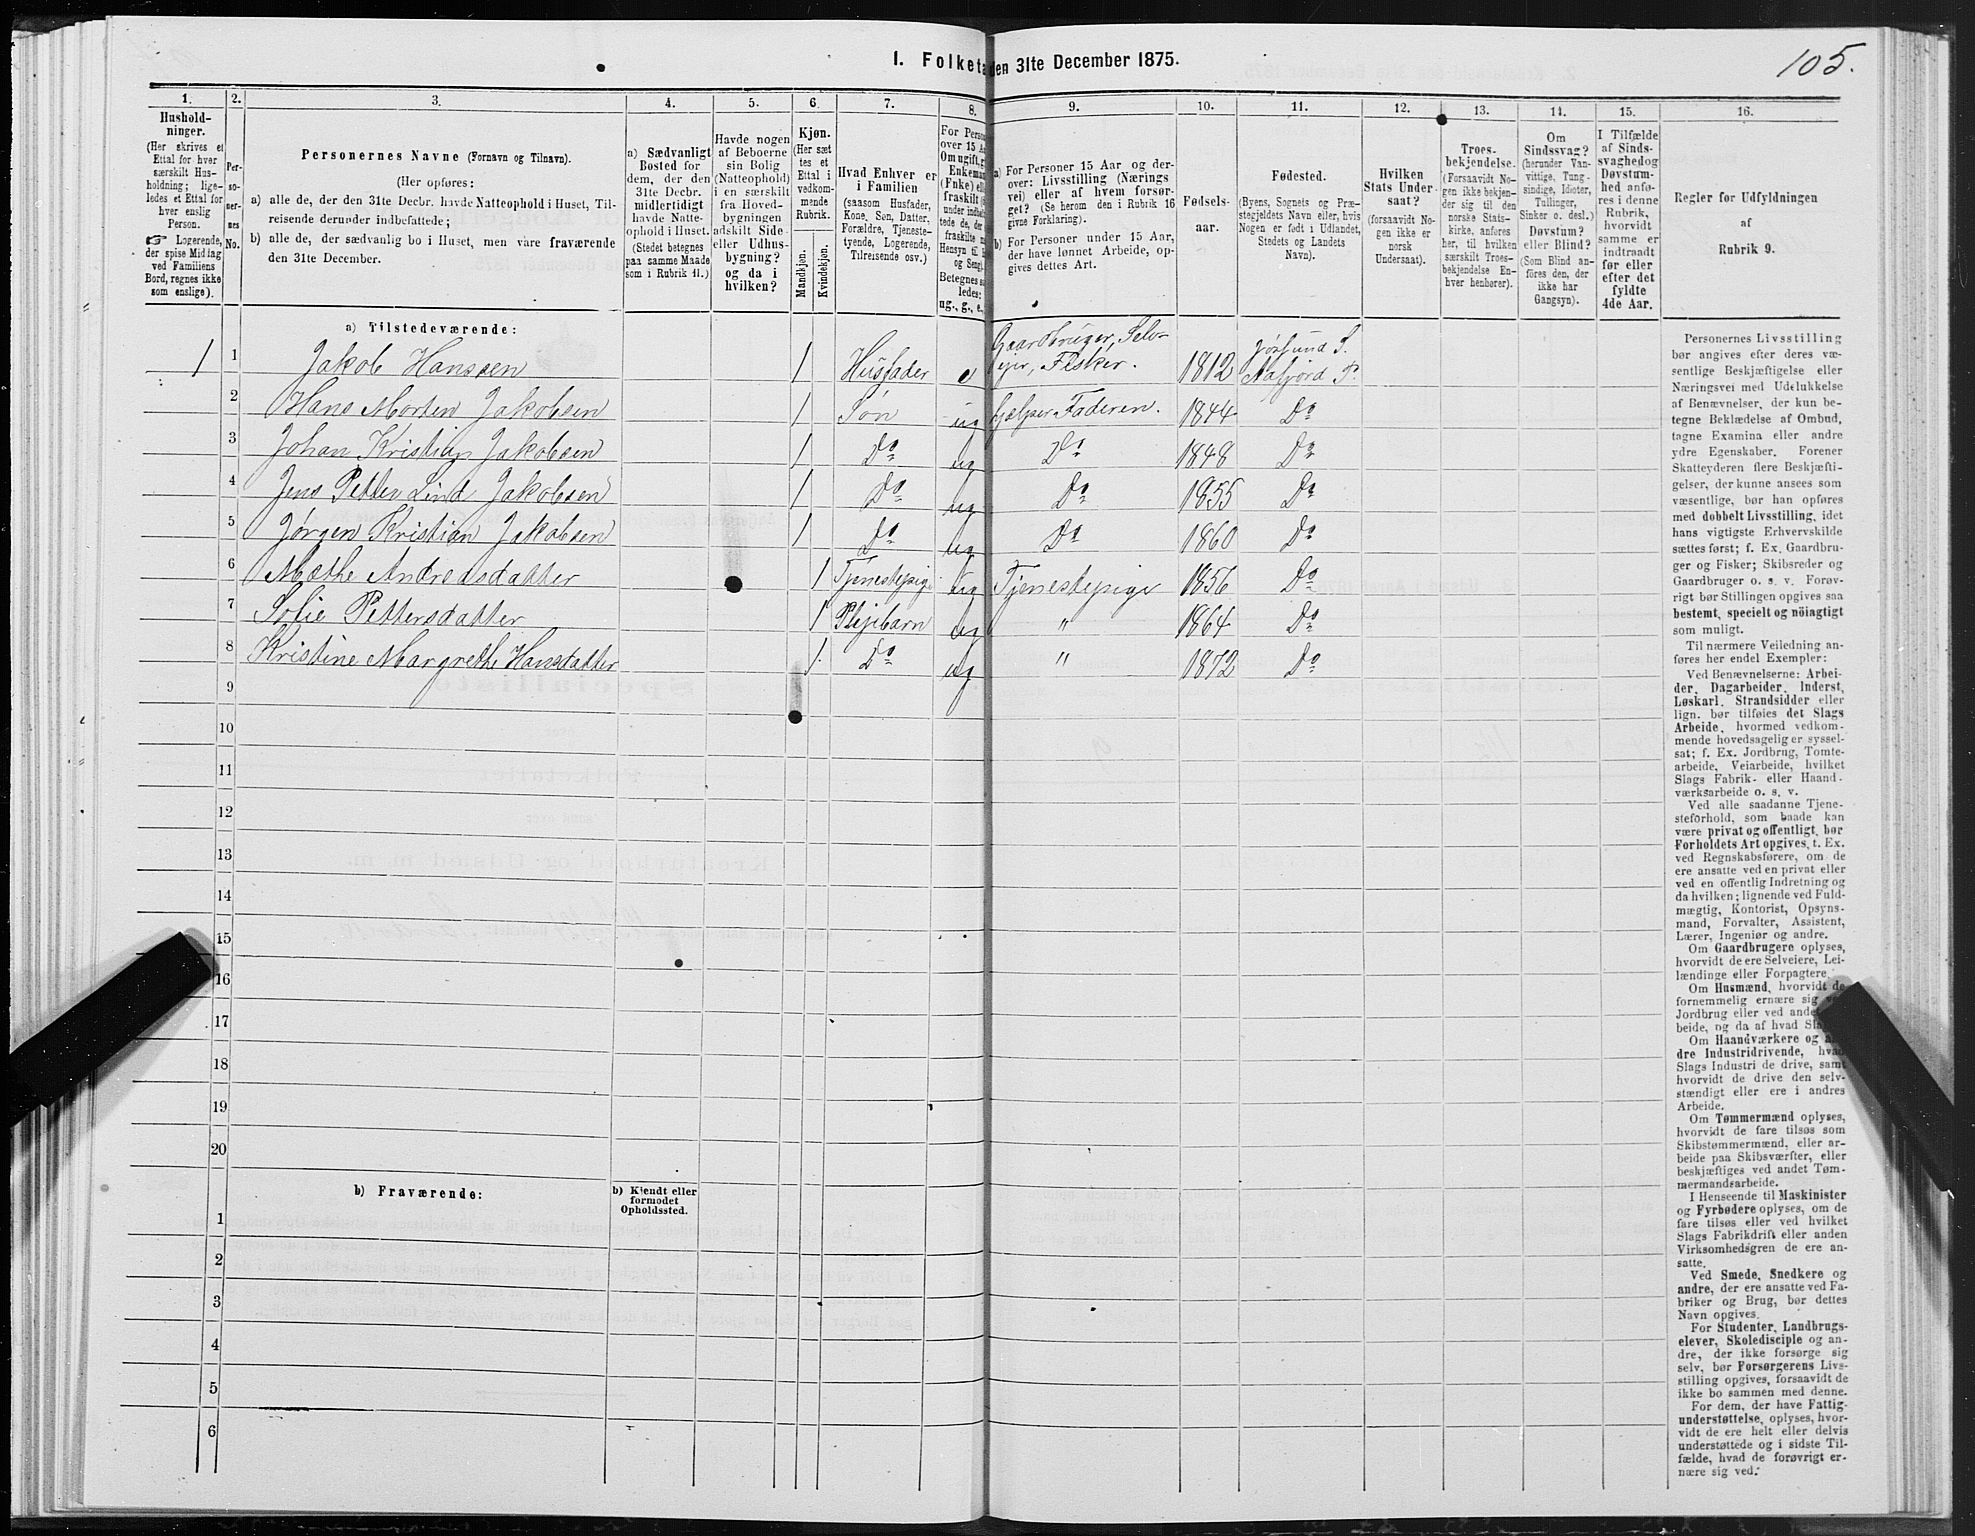 105.
1. Folketæ
den 31te December 1875.
1.
Hushold-
ninger.
(Her skrives et
Ettal for hver
særskilt Hus-
holdning; lige-
ledes et Ettal for
hver enslig
Person.
☞ Logerende,
der spise Middag
ved Familiens
Bord, regnes ikke
som enslige).
2.
Per-
so-
ner-
nes
No.
3.
Personernes Navne (Fornavn og Tilnavn).
(Her opføres:
a) alle de, der den 31te Decbr. havde Natteophold i Huset, Til-
reisende derunder indbefattede;
b) alle de, der sædvanlig bo i Huset, men vare fraværende
den 31te December.
4.
a) Sædvanligt
Bosted for
dem, der den
31te Decbr.
midlertidigt
havde Natte-
ophold i Huset.
(Stedet betegnes
paa samme Maade
som i Rubrik 11.)
5.
Havde nogen
af Beboerne
sin Bolig
(Natteophold)
i en særskilt
fra Hoved-
bygningen
adskilt Side-
eller Udhus-
bygning?
og da i
hvilken?
6.
Kjøn.
(Her sæt
tes et
Ettal i
vedkom-
mende
Rubrik.
Mandkjøn.
Kvindekjøn.
7.
Hvad Enhver er
i Familien
(saasom Husfader,
Kone, Søn, Datter,
Forældre, Tjeneste-
tyende, Logerende,
Tilreisende osv.)
8.
For Perso
over 15 A
Om ugift, g
Enkeman
(Fnke) ell
fraskilt
under indbe
tede de, der
fraskilte
Hensyn til
og Seng).
Betegnes
ledes:
ug., g., e.,
9.
a) For Personer 15 Aar og der-
over: Livsstilling (Nærings
vei) eller af hvem forsør-
get? (Se herom den i Rubrik 16
givne Forklaring).
b) For Personer under 15 Aar,
der have lønnet Arbeide, op-
gives dettes Art.
10.
Fødsels-
aar.
11.
Fødested.
(Byens, Sognets og Præ-
stegjeldets Navn eller, hvis
Nogen er født i Udlandet,
Stedets og Landets
Navn).
12.
Hvilken
Stats Under-
saat?
(forsaavidt No-
gen ikke er
norsk
Undersaat).
13.
Troes-
bekjendelse.
(Forsaavidt No-
gen ikke bekjen-
der sig til den
norske Stats-
kirke, anføres
her, til hvilken
særskilt Troes-
bekjendelse En-
hver henhører).
14.
Om
Sindssvag?
(herunder Van-
vittige, Tung-
sindige, Idioter,
Tullinger,
Sinker o. desl.)
Døvstum?
eller Blind?
(Som Blind an-
føres den, der
ikke har
Gangsyn).
15.
I Tilfælde
af Sinds-
svaghed og
Døvstum-
hed anfø-
res i denne
Rubrik,
hvorvidt
samme er
indtraadt
før eller
efter det
fyldte
4de Aar.
16.
Regler for Udfyldningen
af
Rubrik 9.
a) Tilstedeværende:
1 1 Jakob Hanssen 1 Husfader e Gaardbruger, Selv-
ejer, Fisker. 1812 Jøssund S.
Aafjord P.
2 Hans Morten Jakobsen 1 Søn ug hjælper Faderen. 1844 Do
3 Johan Kristian Jakobsen 1 Do ug Do 1848 Do
4 Jens Petter Lind Jakobsen 1 Do ug Do 1855 Do
5 Jørgen Kristian Jakobsen 1 Do ug Do 1860 Do
6 Mæthe Andreasdatter 1 Tjenestepige ug Tjenestepige 1856 Do
7 Sofie Pettersdatter 1 Plejebarn ug " 1864 Do
8 Kristine Margrethe Hansdatter 1 Do ug " 1872 Do
9
10
11
12
13
14
15
16
17
18
19
20
b) Fraværende:
b) Kjendt eller
formodet
Opholdssted.
1
2
3
4
5
6
Personernes Livsstilling
bør angives efter deres væ-
sentlige Beskjæftigelse eller
Næringsvei med Udelukkelse
af Benævnelser, der kun be-
tegne Beklædelse af Ombud,
tagne Examina eller andre
ydre Egenskaber. Forener
Skatteyderen flere Beskjæfti-
gelser, der kunne ansees som
væsentlige, bør han opføres
med dobbelt Livsstilling, idet
hans vigtigste Erhvervskilde
sættes først; f. Ex. Gaardbru-
ger og Fisker; Skibsreder og
Gaardbruger o. s. v. Forøv-
rigt bør Stillingen opgives saa
bestemt, specielt og nöiagtigt
som muligt.
Til nærmere Veiledning an-
føres her endel Exempler:
Ved Benævnelserne: Arbei-
der, Dagarbeider, Inderst,
Løskarl, Strandsidder eller
lign. bør tilføies det Slags
Arbeide, hvormed vedkom-
mende hovedsagelig er syssel-
sat; f. Ex. Jordbrug, Tomte-
arbeide, Veiarbeide, hvilket
Slags Fabrik- eller Haand-
værksarbeide o. s. v.
Ved alle saadanne Tjene-
steforhold, som baade kan
være privat og offentligt, bør
Forholdets Art opgives, t. Ex.
ved Regnskabsførere, om de
ere ansatte ved en privat eller
ved en offentlig Indretning og
da hvilken; lignende ved Fuld-
mægtig, Kontorist, Opsyns-
mand, Forvalter, Assistent,
Lærer, Ingeniør og andre.
Om Gaardbrugere oplyses,
hvorvidt de ere Selveiere, Lei-
lændinge eller Forpagtere.
Om Husmænd, hvorvidt de
fornemmelig ernære sig ved
Jordbrug eller ved andet
beide, og da af hvad Slags
Om Haandværkere og an-
dre Industridrivende, hvad
Slags Industri de drive, samt
hvorvidt de drive den selv-
stændigt eller ere i andres
Arbeide.
Om Tømmermænd oplyses,
hvorvidt de fare tilsøs som
Skibstømmermænd, eller ar-
beide paa Skibsværfter, eller
beskjæftiges ved andet Tøm-
mermandsarbeide.
I Henseende til Maskinister
og Fyrbødere oplyses, om de
fare tilsøs eller ved hvilket
Slags Fabrikdrift eller anden
Virksomhedsgren de ere an-
satte.
Ved Smede, Snedkere og
andre, der ere ansatte ved Fa-
briker og Brug, bør dettes
Navn opgives.
For Studenter, Landbrugs-
elever, Skoledisciple og an-
dre, der ikke forsørge sig
selv, bør Forsørgerens Livs-
stilling opgives, forsaavidt de
ikke bo sammen med denne.
For dem, der have Fattig-
understøttelse, oplyses, hvor-
vidt de ere helt eller delvis
understøttede og i sidste Til-
fælde, hvad de forøvrigt er-
nære sig ved.